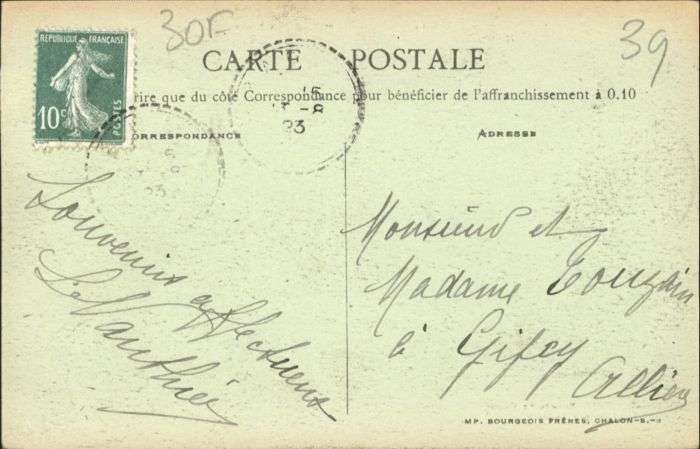 30F
39
REPUBLIQUE FRANÇAISE
10c
POSTES
CARTE POSTALE
rire que du côté Correspondance pour bénéficier de l'affranchissement à 0.10
ORRESPONDANCE
ADRESSE
15
-8
23
Souvenirs affectueux
Vauthier
Monsieur et
Madame Touzain
à Gipcy
Allier
MP. BOURGEOIS FRÈRES, CHALON-S.-S